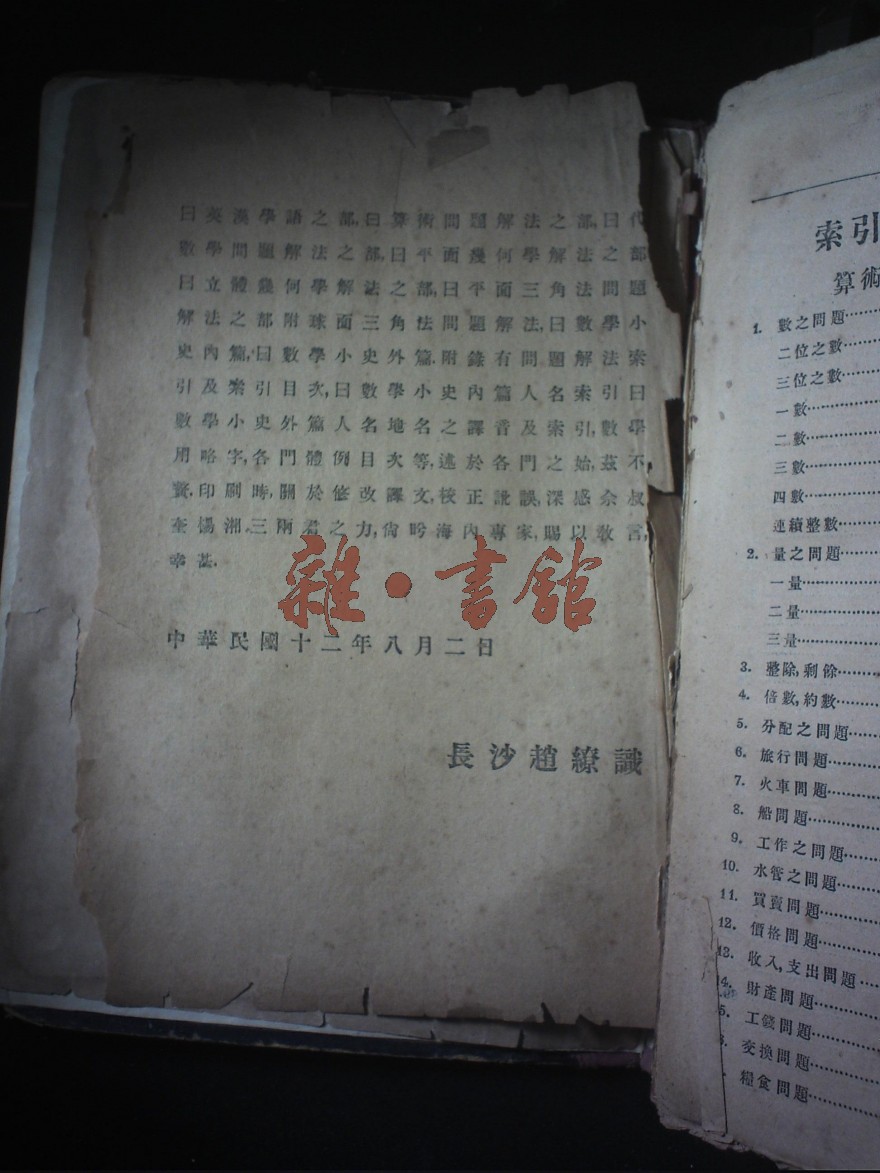 曰英漢學語之部,曰算術問題解法之部,曰代
數學問題解法之部,曰平面幾何學解法之部
曰立體幾何學解法之部,曰平面三角法問題
解法之部附球面三角法問題解法,曰數學小
史內篇,曰數學小史外篇.附錄有問題解法索
引及索引目次,曰數學小史內篇人名索引曰
數學小史外篇人名地名之譯音及索引,數學
用略字,各門體例目次等,述於各門之始,茲不
贅.印刷時,關於修改譯文,校正訛誤,深感余叔
奎楊湘三兩君之力,尙盻海內專家,賜以敎言,
幸甚.
雜·書館
中華民國十二年八月二日
長沙趙繚識
索引
算術
1. 數之問題
二位之數
三位之數
一數
二數
三數
四數
連續整數
2. 量之問題
一量
二量
三量
3. 整除,剩餘
4. 倍數,約數
5. 分配之問題
6. 旅行問題
7. 火車問題
8. 船問題
9. 工作之問題
10. 水管之問題
11. 買賣問題
12. 價格問題
13. 收入,支出問題
14. 財產問題
5. 工錢問題
交換問題
糧食問題